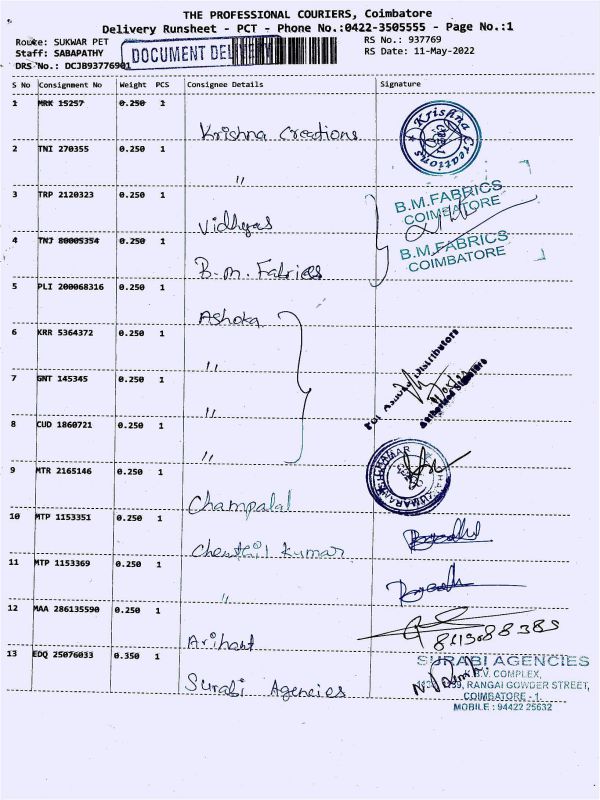 THE PROFESSIONAL COURIERS, Coimbatore
Delivery Runsheet - PCT - Phone No.:0422-3505555 - Page No.:1
Route: SUKWAR PET RS No.: 937769
Staff: SABAPATHY DOCUMENT RS Date: 11-May-2022
DRS No.: DCJB93776901
S No Consignment No Weight PCS Consignee Details Signature
1 MRK 15257 0.250 1 Krishna Creations Krishna Creations
2 TNI 270355 0.250 1 "
3 TRP 2120323 0.250 1 Vidhyas B.M.FABRICS
COIMBATORE
4 TNJ 80005354 0.250 1 B.M. Fabrics B.M.FABRICS
COIMBATORE
5 PLI 200068316 0.250 1 Ashoka
6 KRR 5364372 0.250 1 "
7 GNT 145345 0.250 1 " For Asoka Distributors
Authorised Signatory
8 CUD 1860721 0.250 1 "
9 MTR 2165146 0.250 1 Champalal
10 MTP 1153351 0.250 1 Kumar
11 MTP 1153369 0.250 1 "
12 MAA 286135590 0.250 1 Arihant
13 EDQ 25076033 0.350 1 Surabi Agencies SURABI AGENCIES
K.B.V. COMPLEX,
RANGAI GOWDER STREET,
COIMBATORE - 1.
MOBILE : 94422 25632